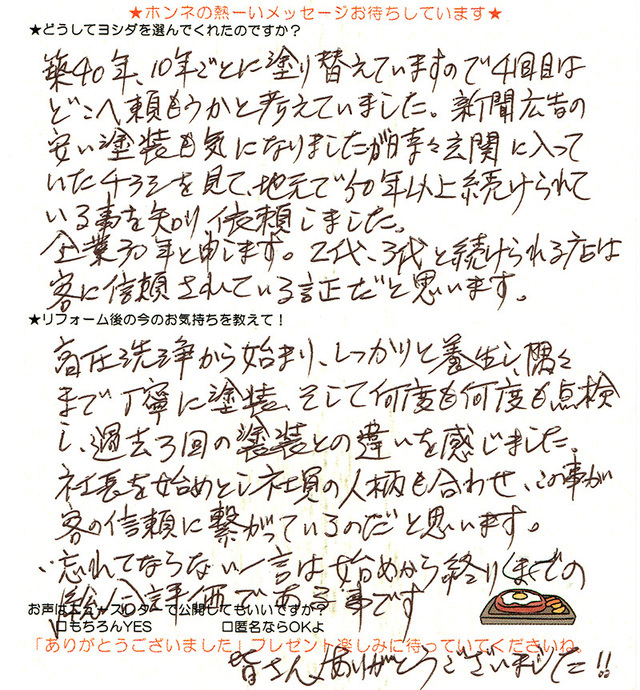 ★ホンネの熱ーいメッセージお待ちしています★
★どうしてヨシダを選んでくれたのですか？
築40年、10年ごとに塗り替えていますので4回目は
どこへ頼もうかと考えていました。新聞広告の
安い塗装も気になりましたが時々玄関に入って
いたチラシを見て、地元で50年以上続けられて
いる事を知り依頼しました。
企業30年と申します。2代、3代と続けられる店は
客に信頼されている証正だと思います。
★リフォーム後の今のお気持ちを教えて！
高圧洗浄から始まり、しっかりと養生し、隅々
まで丁寧に塗装、そして何度も何度も点検
し、過去3回の塗装との違いを感じました。
社長を始めとし社員の人柄も合わせ、この事が
客の信頼に繋がっているのだと思います。
忘れてならない一言は始めから終りまでの
評価である事です
お声は で公開してもいいですか？
□もちろんYES □匿名ならOKよ
「ありがとうございました」プレゼント楽しみに待っていてくださいね。
皆さんありがとうございました!!